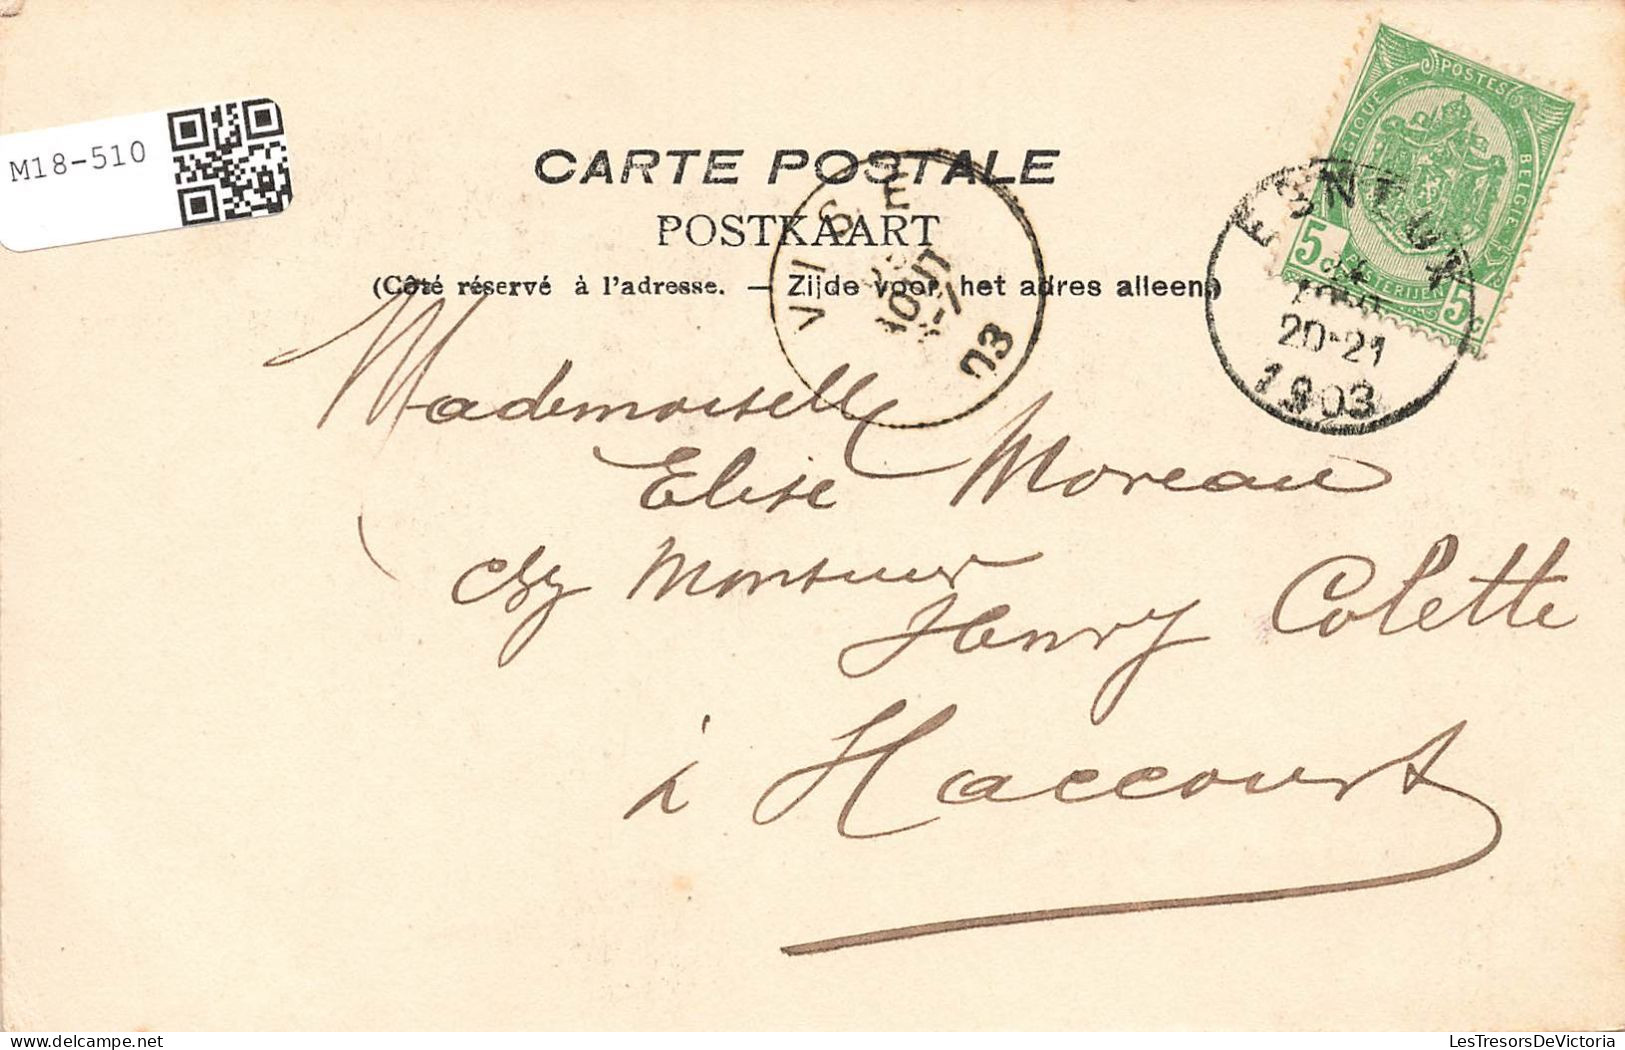 M18-510
CARTE POSTALE
POSTKAART
(Côté réservé à l'adresse. — Zijde voor het adres alleen)
POSTES
BELGIQUE
BELGIE
POSTERIJEN
5c 5c
VISE
AOUT
03
20-21
1903
Mademoiselle
Elise Moreau
chez Monsieur
Henry Colette
à Haccourt
LesTresorsDeVictoria